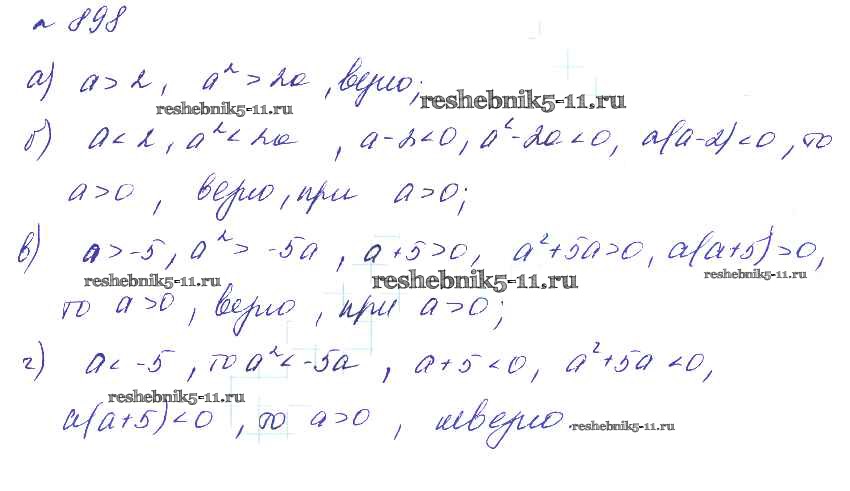 № 898
а) a > 2, a² > 2a, верно;
reshebnik5-11.ru reshebnik5-11.ru
б) a < 2, a² < 2a, a-2<0, a²-2a<0, a(a-2)<0, то
a>0, верно, при a>0;
в) a>-5, a²> -5a, a+5>0, a²+5a>0, a(a+5)>0,
reshebnik5-11.ru reshebnik5-11.ru reshebnik5-11.ru
то a>0, верно, при a>0;
г) a< -5, то a²< -5a, a+5<0, a²+5a<0,
reshebnik5-11.ru
a(a+5)<0, то a>0, неверно. reshebnik5-11.ru